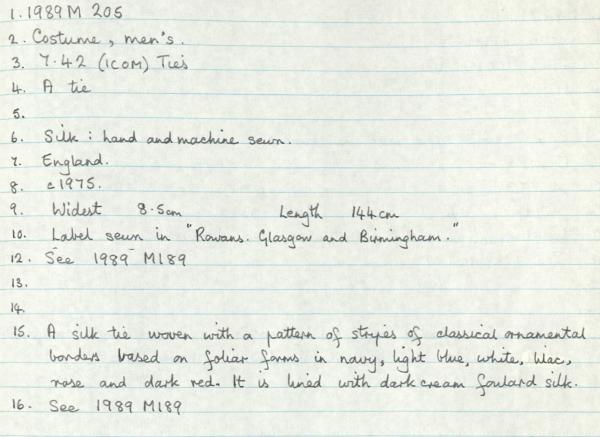 1. 1989 M 205
2. Costume, men's.
3. 7.42 (ICOM) Ties
4. A tie
5.
6. Silk : hand and machine sewn.
7. England.
8. c1975.
9. Widest 8.5cm Length 144cm
10. Label sewn in "Rowans. Glasgow and Birmingham."
12. See 1989 M189
13.
14.
15. A silk tie woven with a pattern of stripes of classical ornamental
borders based on foliar forms in navy, light blue, white, lilac,
rose and dark red. It is lined with dark cream foulard silk.
16. See 1989 M189